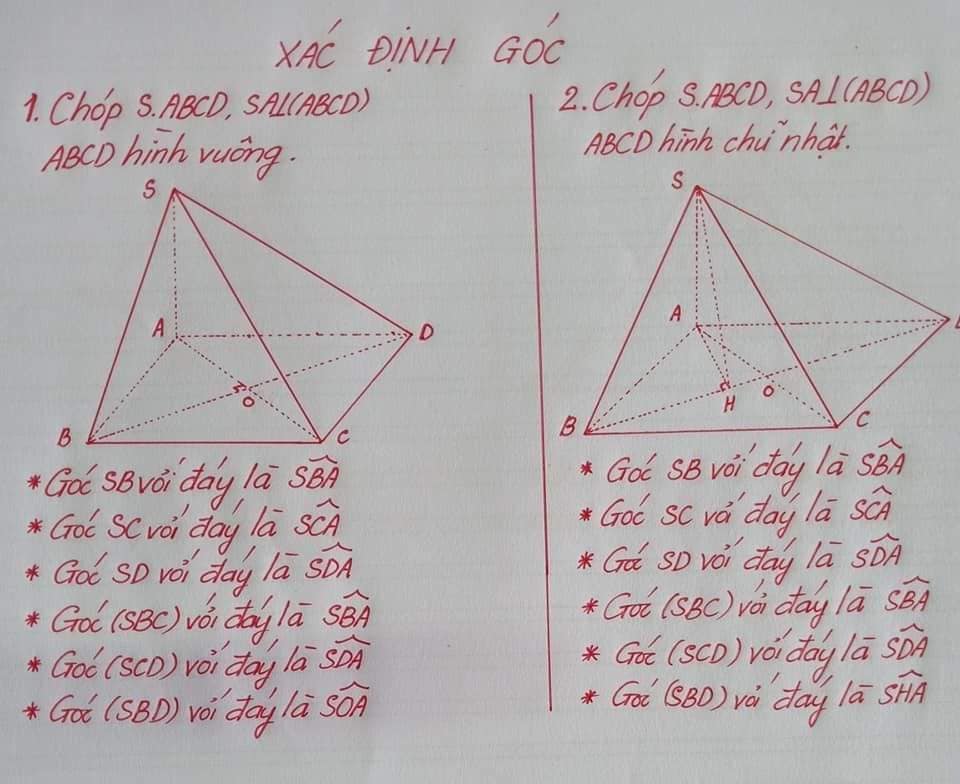 XÁC ĐỊNH GÓC
1. Chóp S.ABCD, SA⊥(ABCD)
ABCD hình vuông.
S
A
D
O
B
C
* Góc SB với đáy là SBA
* Góc SC với đáy là SCA
* Góc SD với đáy là SDA
* Góc (SBC) với đáy là SBA
* Góc (SCD) với đáy là SDA
* Góc (SBD) với đáy là SOA
2. Chóp S.ABCD, SA⊥(ABCD)
ABCD hình chữ nhật.
S
A
H
O
B
C
* Góc SB với đáy là SBA
* Góc SC và đáy là SCA
* Góc SD với đáy là SDA
* Góc (SBC) với đáy là SBA
* Góc (SCD) với đáy là SDA
* Góc (SBD) và đáy là SHA